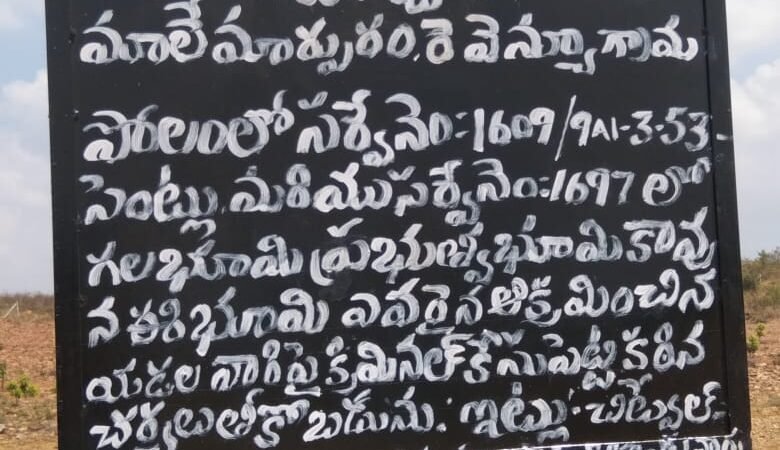 మాలేమార్పురం, రెవెన్యూగ్రామ
పొలంలో సర్వేనెం:1609/9A1-3-53
సెంట్లు, మరియు సర్వేనెం:1697 లో
గల భూమి ప్రభుత్వభూమి కావు
న ఈ భూమి ఎవరైన ఆక్రమించిన
యడల వారిపై క్రిమినల్ కేసుపెట్టి కఠిన
చర్యలు తీకోబడును. ఇట్లు: చిట్వేల్